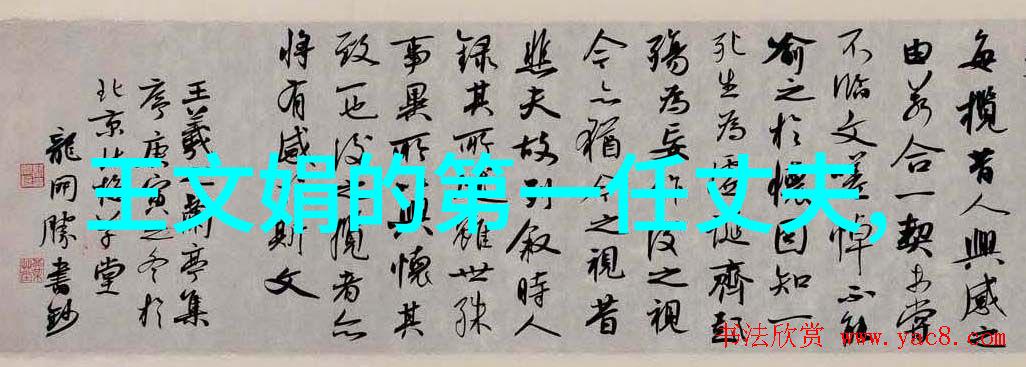 每攬昔人興感之
由若合一契未嘗
不臨文嗟悼不能
喻之於懷固知一
死生為虛誕齊彭
殤為妄作後之視
今亦猶今之視昔
悲夫故列敘時人
錄其所述雖世殊
事異所以興懷其
致一也後之攬者亦
將有感斯文
王羲之蘭亭集
序庚寅之冬於
北京草堂
龍開勝書鈔
王文娟的第一任丈夫,
书法欣赏 www.yac8.com